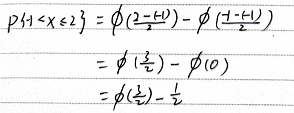 P{-1<x≤2} = ϕ(2-(-1)/2) - ϕ(-1-(-1)/2)
= ϕ(3/2) - ϕ(0)
= ϕ(3/2) - 1/2